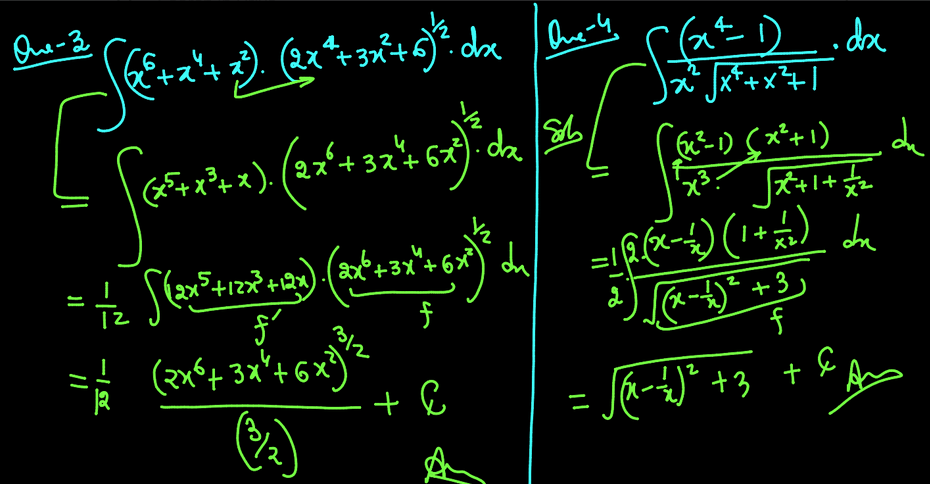 Que-3 ∫(x⁶+x⁴+x²).(2x⁴+3x²+6)^½.dx
∫(x⁵+x³+x).(2x⁶+3x⁴+6x²)^½.dx
= 1/12 ∫(12x⁵+12x³+12x).(2x⁶+3x⁴+6x²)^½ dx
f′ f
= 1/12 (2x⁶+3x⁴+6x²)^3/2 / (3/2) + C
Ans
Que-4 ∫ (x⁴-1) / x²√(x⁴+x²+1) .dx
Sol ∫ (x²-1)(x²+1) / x³.√(x²+1+1/x²) dx
= 1/2 ∫ 2(x-1/x)(1+1/x²) / √((x-1/x)²+3) dx
f
= √((x-1/x)²+3) + C Ans